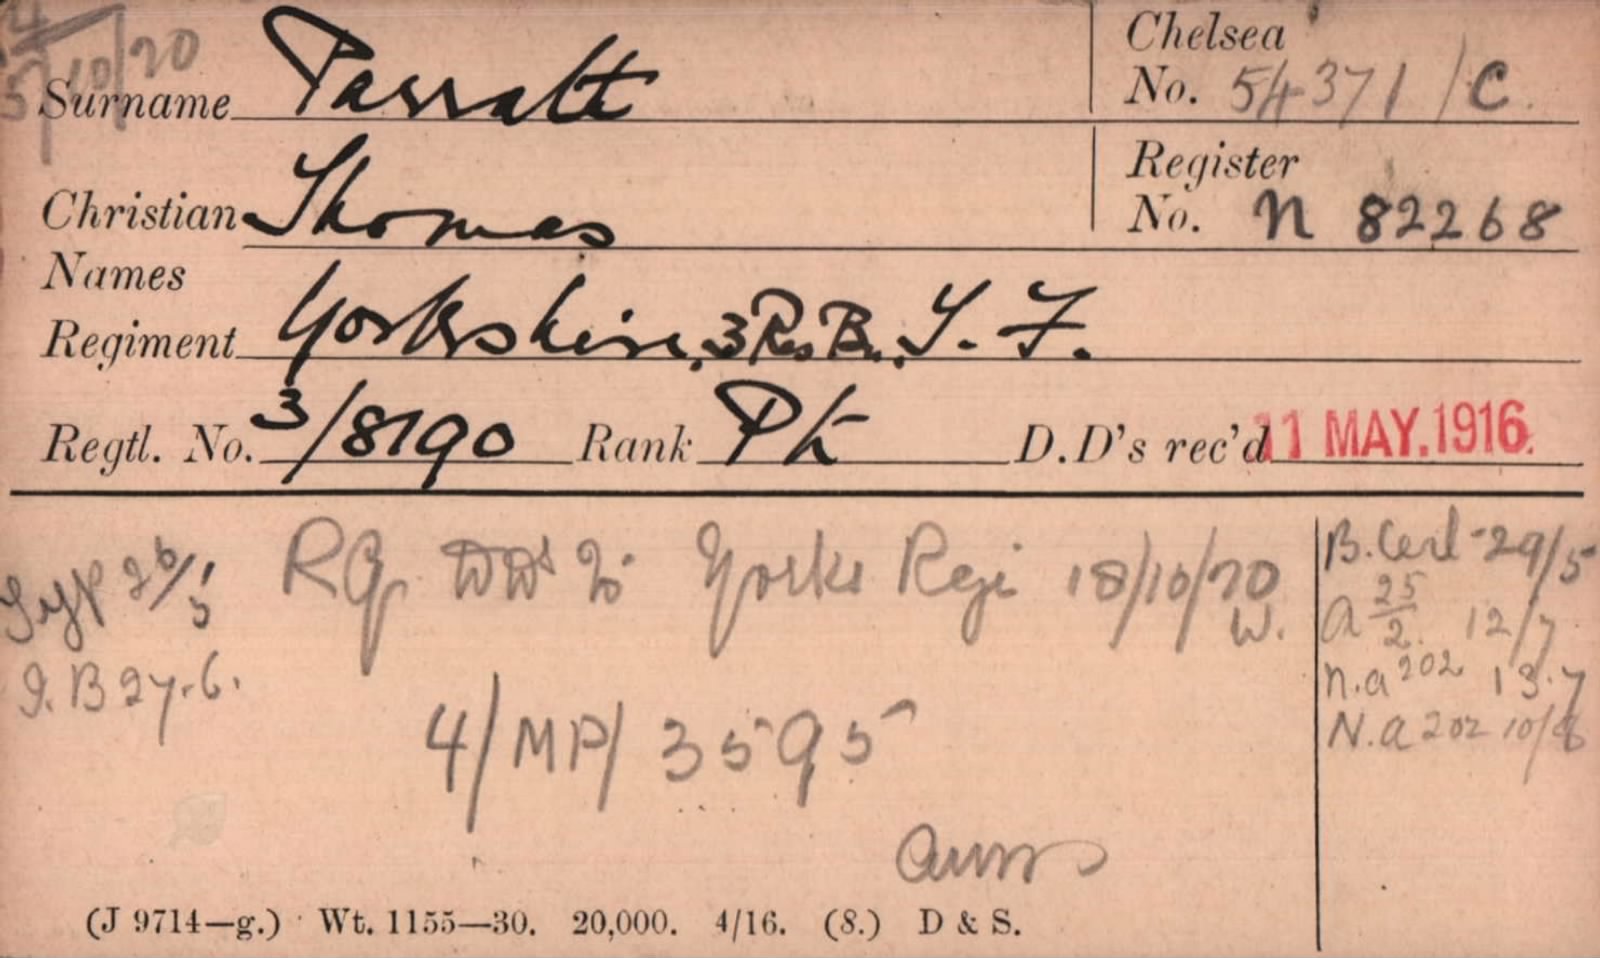 4
5/10/20
Surname Parratt
Chelsea
No. 54371/C
Christian Thomas
Names
Register
No. N 82268
Regiment Yorkshire, 3 Res Bn. T. F.
Regtl. No. 3/8190 Rank Pte D.D's rec'd 11 MAY.1916.
26/5 RG DDs to Yorks Regt 18/10/20
W.
I.B 27.6.
4/MP/3595
B.Cert - 29/5
A 25/2. 12/7
N.a 202 13.7
N.a 202 10/8
(J 9714—g.) Wt. 1155—30. 20,000. 4/16. (S.) D & S.